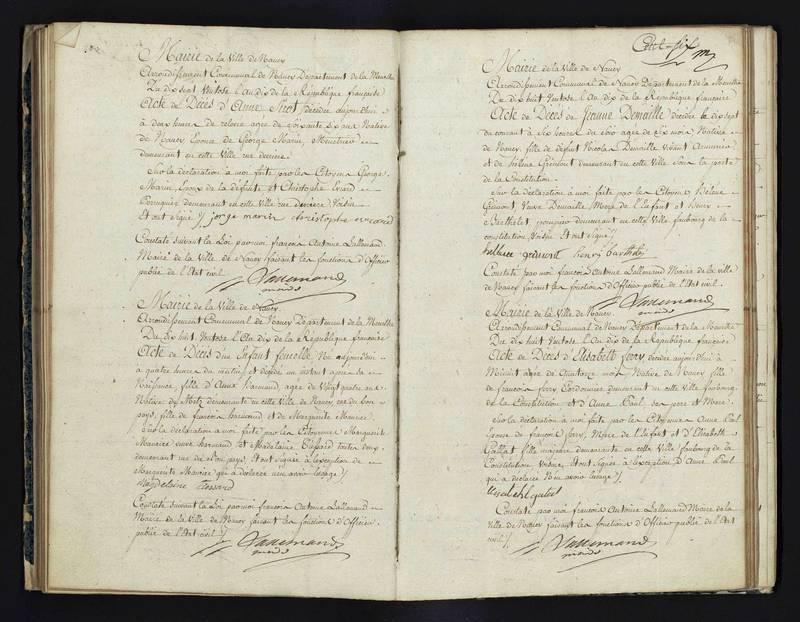 Mairie de la Ville de Nancy
Arrondissement Communal de Nancy Département de la Meurthe
Du dix sept Ventose l'an dix de la République française
Acte de Décès d'Anne décédée aujourd'hui
à deux heures de relevée agée de soixante six ans Native
de Nancy Epouse de George Marin, Menuisier
demeurant en cette Ville rue derrière.
Sur la déclaration à moi faite par les Citoyens George
Marin, Epoux de la défunte et Christophe Evrard
Perruquier demeurant en cette Ville rue derrière Voisin
Et ont signé /. jorge marin christophe evrard
Constaté suivant la Loi par moi françois Antoine Lallemand
Maire de la Ville de Nancy faisant les fonctions d'Officier
public de l'Etat civil.
Lallemand
maire
Mairie de la Ville de Nancy
Arrondissement Communal de Nancy Département de la Meurthe
Du dix huit Ventose l'An dix de la République française
Acte de Décès d'un Enfant femelle, Né aujourd'hui
à quatre heures du matin, et décédé un instant après sa
Naissance, fille d'Anne agée de Vingt quatre ans
Native de Metz demeurante en cette Ville de Nancy rue du bon
pays, fille de françois et de Marguerite Maurice.
Sur la déclaration à moi faite par les Citoyennes Marguerite
Maurice veuve et Madelaine toutes deux
demeurant rue du bon pays, Et ont signée à l'exception de
Marguerite Maurice qui a déclaré n'en avoir l'usage /.
Magdelaine
Constaté suivant la Loi par moi françois Antoine Lallemand
Maire de la Ville de Nancy faisant les fonctions d'Officier
public de l'Etat civil /.
Lallemand
maire
Cent-six
Mairie de la Ville de Nancy
Arrondissement Communal de Nancy Département de la Meurthe
Du dix huit Ventose l'An dix de la République française
Acte de Décès de Jeanne Demaille décédée le dix sept
du courant à six heures du soir agée de six mois Native
de Nancy, fille de défunt Nicolas Demaille vivant Armurier
et de demeurant en cette Ville sous la porte
de la Constitution.
Sur la déclaration à moi faite par les Citoyens
Veuve Demaille, Mère de l'Enfant et Henry
Barthelet pompier demeurant en cette Ville faubourg de la
constitution, Voisin Et ont signé /.
henri barthelet
Constaté par moi françois Antoine Lallemand Maire de la ville
de Nancy faisant les fonctions d'Officier public de l'Etat civil.
Lallemand
maire
Mairie de la Ville de Nancy.
Arrondissement Communal de Nancy Département de la Meurthe
Du dix huit Ventose l'An dix de la République française
Acte de Décès d'Elisabeth ferry décédée aujourd'hui à
Minuit agée de Quatorze mois Native de Nancy fille
de françois ferry Cordonnier demeurant en cette Ville faubourg
de la Constitution et d'Anne ses pere et Mere.
Sur la déclaration à moi faite par les Citoyennes Anne
Epouse de françois ferry, Mere de l'Enfant et d'Elisabeth
fille majeure demeurante en cette Ville faubourg de la
Constitution Voisine, Et ont signée à l'exception d'Anne
qui a déclarée N'en avoir l'usage /.
Constaté par moi françois Antoine Lallemand Maire de la
Ville de Nancy faisant les fonctions d'Officier public de l'Etat
civil /.
Lallemand
maire